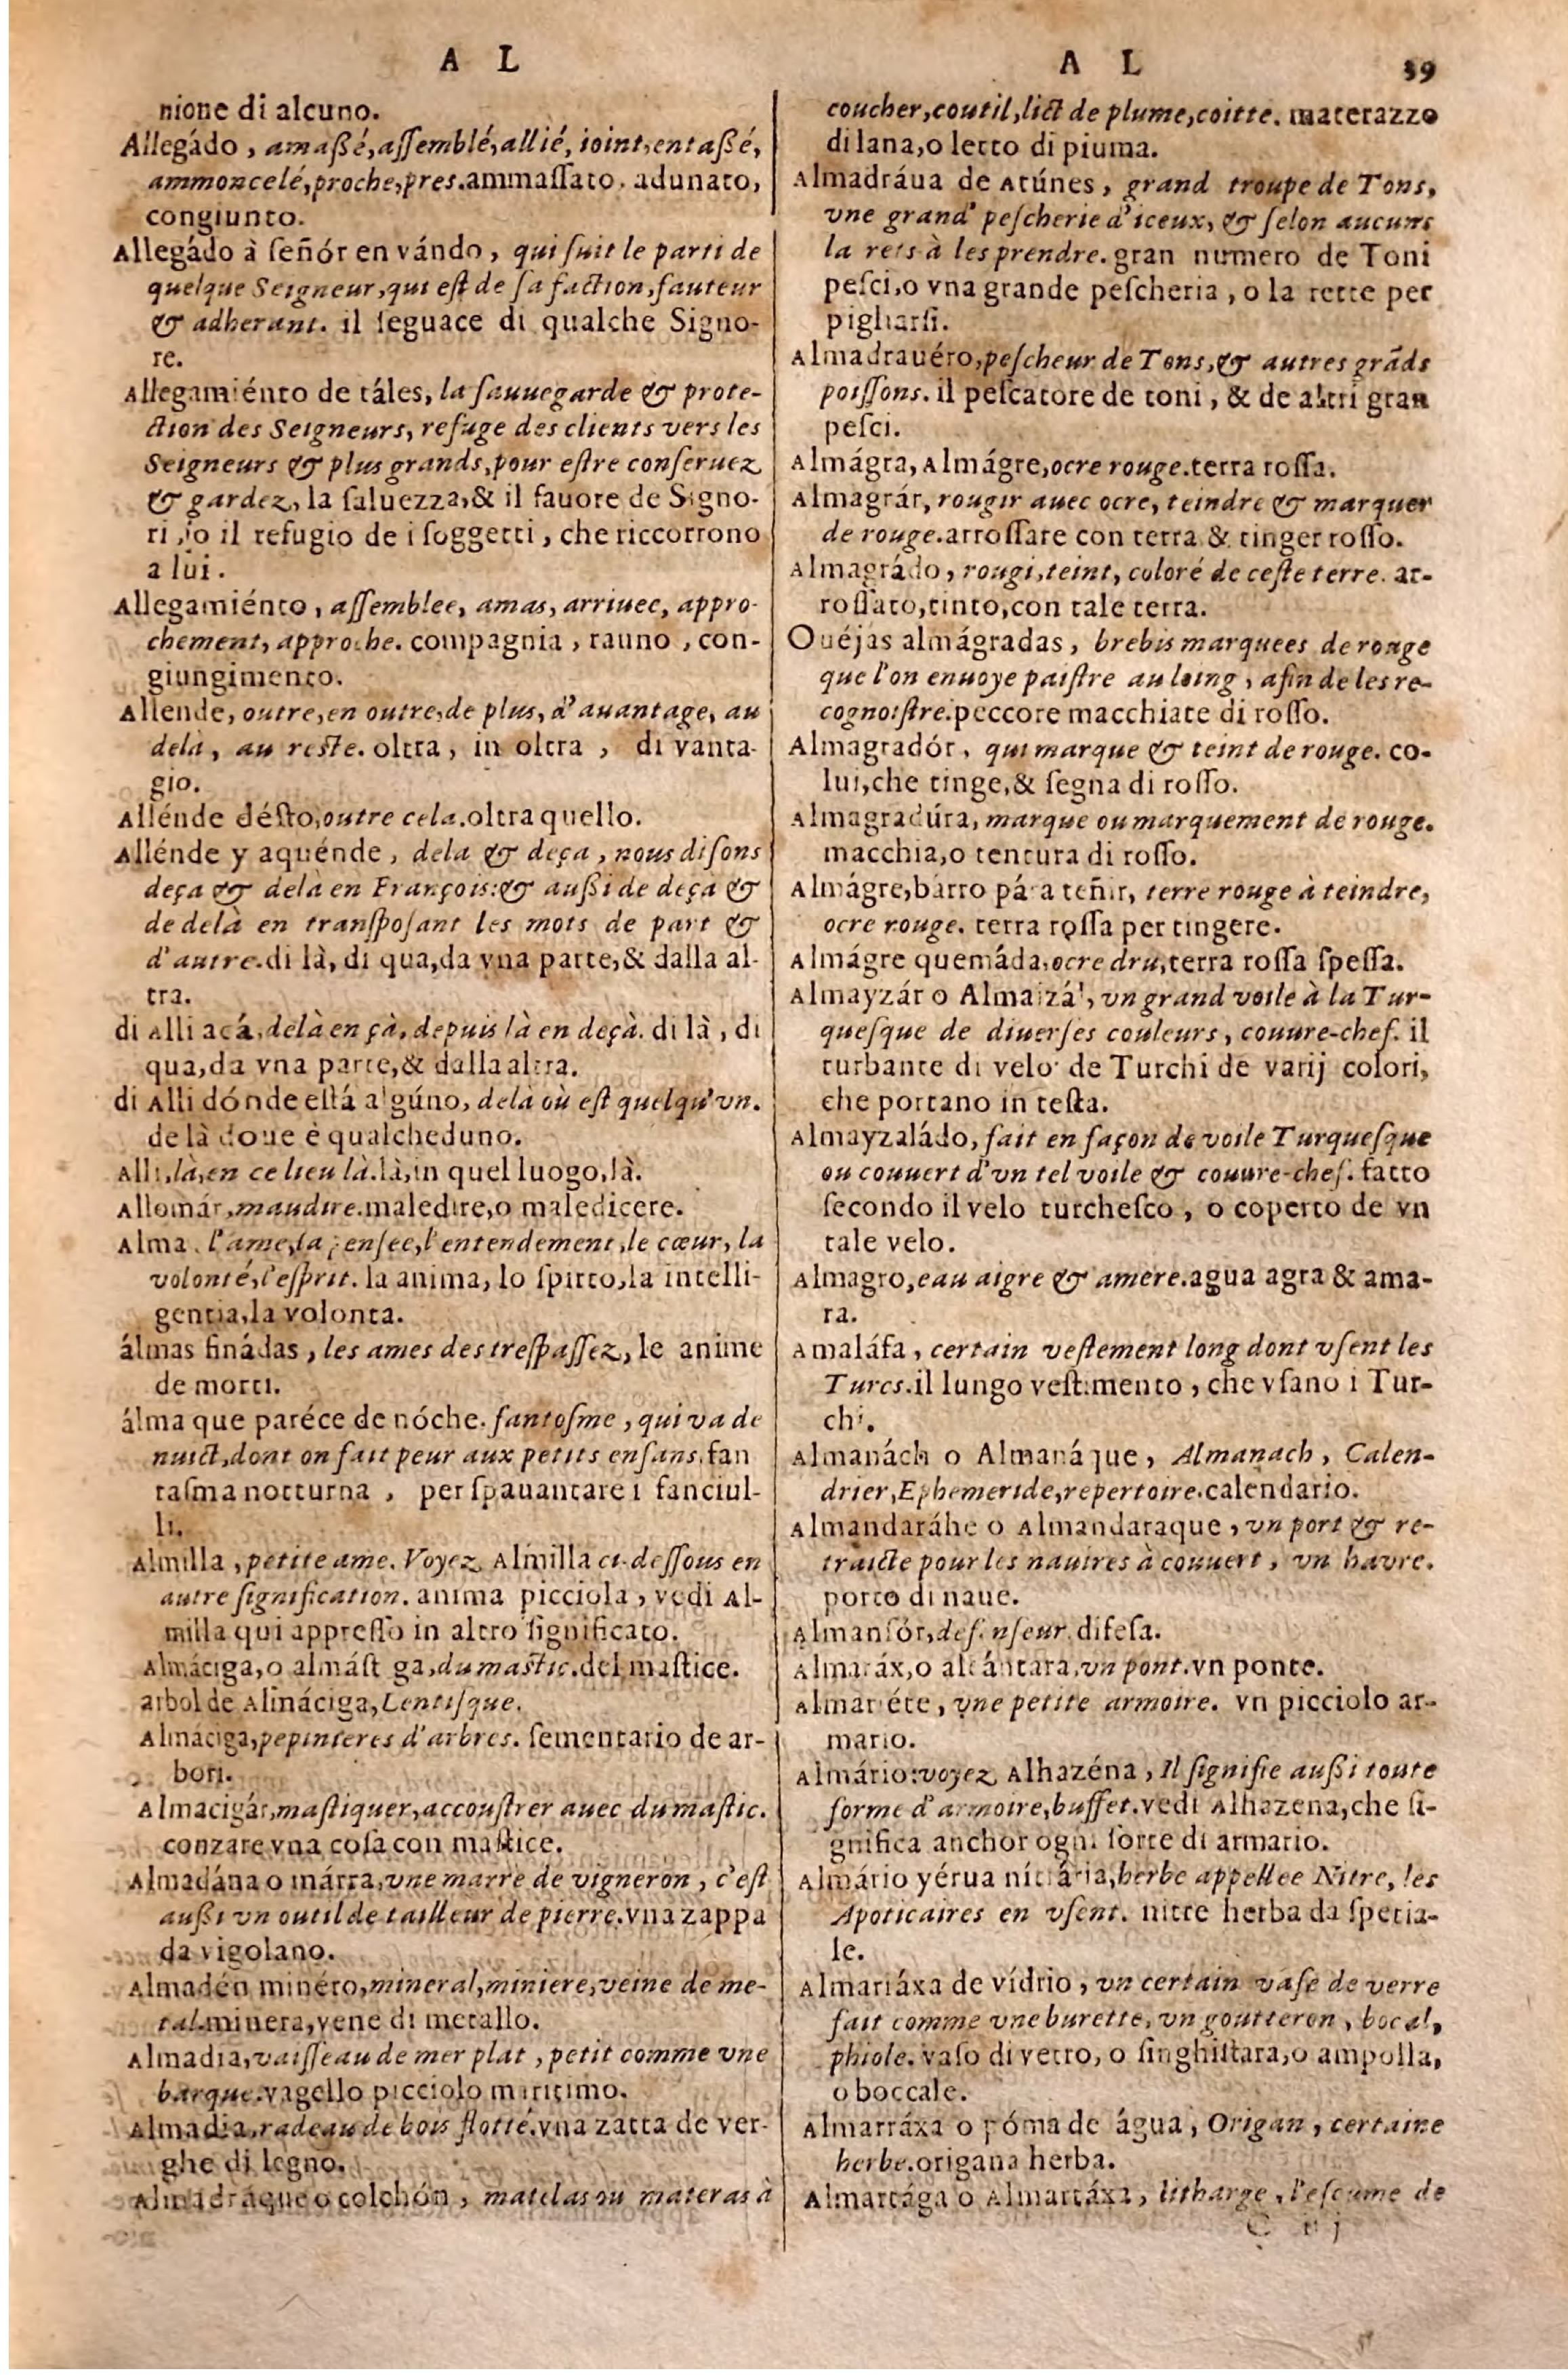 A L
nione di alcuno.
Allegádo, amaßé, aſſemblé, allié, ioint, entaßé,
ammoncelé, proche, pres. ammaſſato. adunato,
congiunto.
Allegádo à ſeñór en vándo, qui ſuit le parti de
quelque Seigneur, qui eſt de ſa faction, fauteur
& adherant. il ſeguace di qualche Signo-
re.
Allegamiénto de táles, la ſauuegarde & prote-
ction des Seigneurs, refuge des clients vers les
Seigneurs & plus grands, pour eſtre conſeruez
& gardez, la ſaluezza, & il fauore de Signo-
ri, o il refugio de i ſoggetti, che riccorrono
a lui.
Allegamiénto, aſſemblee, amas, arriuee, appro-
chement, approche. compagnia, rauno, con-
giungimento.
Allende, outre, en outre, de plus, d'auantage, au
delà, au reſte. oltra, in oltra, di vanta-
gio.
Allénde déſto, outre cela. oltra quello.
Allénde y aquénde, dela & deça, nous diſons
deça & delà en François: & außi de deçà &
de delà en tranſpoſant les mots de part &
d'autre. di là, di qua, da vna parte, & dalla al-
tra.
di Alli acá, delà en çà, depuis là en deçà. di là, di
qua, da vna parte, & dalla altra.
di Alli dónde eſtá algúno, delà où eſt quelqu'vn.
de là doue è qualcheduno.
Alli, là, en ce lieu là. là, in quel luogo, là.
Allomár, maudire. maledire, o maledicere.
Alma, l'ame, la penſee, l'entendement, le cœur, la
volonté, l'eſprit. la anima, lo ſpirto, la intelli-
gentia, la volonta.
álmas finádas, les ames des treſpaſſez, le anime
de morti.
álma que paréce de nóche. fantoſme, qui va de
nuict, dont on fait peur aux petits enfans. fan
taſma notturna, per ſpauantare i fanciul-
li.
Almilla, petite ame. Voyez Almilla ci-deſſous en
autre ſignification. anima picciola, vedi Al-
milla qui appreſſo in altro ſignificato.
Almáciga, o almáſtiga, du maſtic. del maſtice.
arbol de Almáciga, Lentiſque.
Almáciga, pepinieres d'arbres. ſementario de ar-
bori.
Almacigár, maſtiquer, accouſtrer auec du maſtic.
conzare vna coſa con maſtice.
Almadána o márra, vne marre de vigneron, c'eſt
außi vn outil de tailleur de pierre. vna zappa
da vigolano.
Almadén minéro, mineral, miniere, veine de me-
tal. minera, vene di metallo.
Almadia, vaiſſeau de mer plat, petit comme vne
barque. vagello picciolo maritimo.
Almadia, radeau de bois flotté. vna zatta de ver-
ghe di legno.
Almadráque o colchón, matelas ou materas à
A L 39
coucher, coutil, lict de plume, coitte. materazzo
di lana, o letto di piuma.
Almadráua de Atúnes, grand troupe de Tons,
vne grand' peſcherie d'iceux, & ſelon aucuns
la rets à les prendre. gran numero de Toni
peſci, o vna grande peſcheria, o la rette per
pigliarſi.
Almadrauéro, peſcheur de Tons, & autres grãds
poiſſons. il peſcatore de toni, & de altri gran
peſci.
Almágra, Almágre, ocre rouge. terra roſſa.
Almagrár, rougir auec ocre, teindre & marquer
de rouge. arroſſare con terra & tinger roſſo.
Almagrádo, rougi, teint, coloré de ceſte terre. ar-
roſſato, tinto, con tale terra.
Ouéjas almágradas, brebis marquees de rouge
que l'on enuoye paiſtre au loing, afin de les re-
cognoiſtre. peccore macchiate di roſſo.
Almagradór, qui marque & teint de rouge. co-
lui, che tinge, & ſegna di roſſo.
Almagradúra, marque ou marquement de rouge.
macchia, o tentura di roſſo.
Almágre, bárro pára teñir, terre rouge à teindre,
ocre rouge. terra roſſa per tingere.
Almágre quemáda, ocre dru, terra roſſa ſpeſſa.
Almayzár o Almaizál, vn grand voile à la Tur-
queſque de diuerſes couleurs, couure-chef. il
turbante di velo de Turchi de varij colori,
che portano in teſta.
Almayzaládo, fait en façon de voile Turqueſque
ou couuert d'vn tel voile & couure-chef. fatto
ſecondo il velo turcheſco, o coperto de vn
tale velo.
Almagro, eau aigre & amere. agua agra & ama-
ra.
Amaláfa, certain veſtement long dont vſent les
Turcs. il lungo veſtimento, che vſano i Tur-
chi.
Almanách o Almanáque, Almanach, Calen-
drier, Ephemeride, repertoire. calendario.
Almandaráhe o Almandaraque, vn port & re-
traicte pour les nauires à couuert, vn havre.
porto di naue.
Almanſór, defenſeur. difeſa.
Almaráx, o alcántara, vn pont. vn ponte.
Almariéte, vne petite armoire. vn picciolo ar-
mario.
Almário: voyez Alhazéna, Il ſignifie außi toute
forme d'armoire, buffet. vedi Alhazena, che ſi-
gnifica anchor ogni ſorte di armario.
Almário yérua nitrária, herbe appellee Nitre, les
Apoticaires en vſent. nitre herba da ſpetia-
le.
Almariáxa de vídrio, vn certain vaſe de verre
fait comme vne burette, vn goutteron, bocal,
phiole. vaſo di vetro, o ſinghiſtara, o ampolla,
o boccale.
Almarráxa o póma de água, Origan, certaine
herbe. origana herba.
Almartága o Almartáxa, litharge, l'eſcume de
C iij